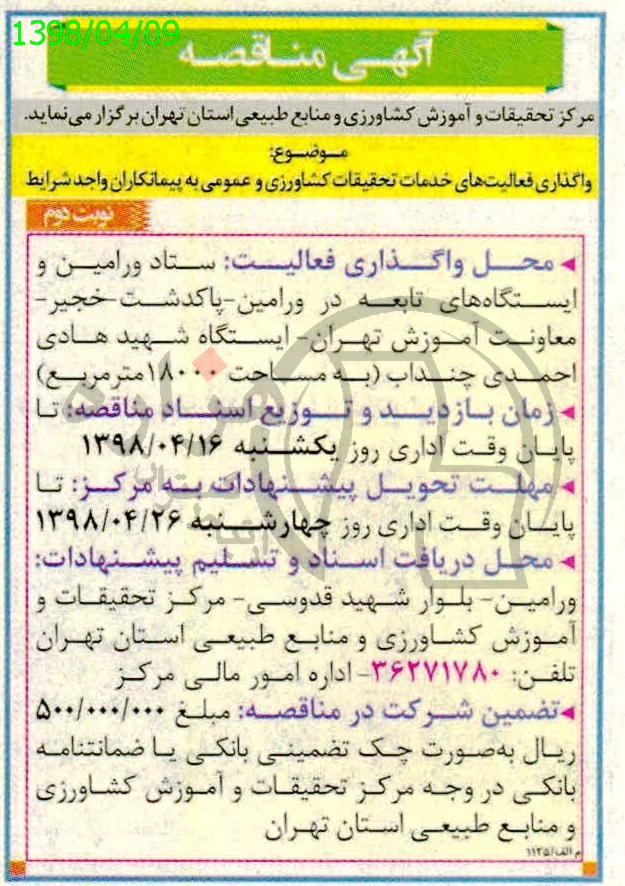 1398/04/09
آگهی مناقصه
مرکز تحقیقات و آموزش کشاورزی و منابع طبیعی استان تهران برگزار می‌نماید.
موضوع:
واگذاری فعالیت‌های خدمات تحقیقات کشاورزی و عمومی به پیمانکاران واجد شرایط
نوبت دوم
محل واگذاری فعالیت: ستاد ورامین و
ایستگاه‌های تابعه در ورامین-پاکدشت-خجیر-
معاونت آموزش تهران- ایستگاه شهید هادی
احمدی چنداب (به مساحت ۱۸۰۰۰ مترمربع)
زمان بازدید و توزیع اسناد مناقصه: تا
پایان وقت اداری روز یکشنبه ۱۳۹۸/۰۴/۱۶
مهلت تحویل پیشنهادات به مرکز: تا
پایان وقت اداری روز چهارشنبه ۱۳۹۸/۰۴/۲۶
محل دریافت اسناد و تسلیم پیشنهادات:
ورامین- بلوار شهید قدوسی- مرکز تحقیقات و
آموزش کشاورزی و منابع طبیعی استان تهران
تلفن: ۳۶۲۷۱۷۸۰- اداره امور مالی مرکز
تضمین شرکت در مناقصه: مبلغ ۵۰۰/۰۰۰/۰۰۰
ریال به‌صورت چک تضمینی بانکی یا ضمانتنامه
بانکی در وجه مرکز تحقیقات و آموزش کشاورزی
و منابع طبیعی استان تهران
م الف/۱۱۲۵